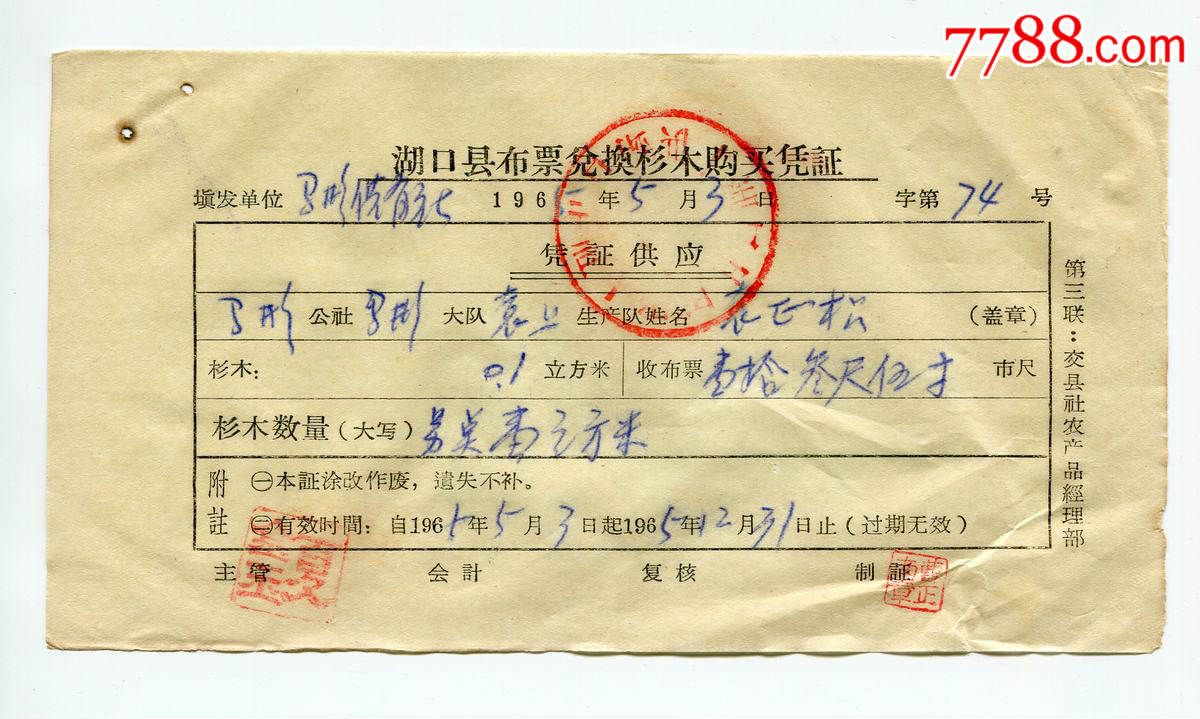 7788.com
湖口县布票兌换杉木购买凭証
填发单位 1965年5月3日 字第74号
凭証供应
公社 大队 袁上 生产队姓名 袁正松 (盖章)
杉木: 0.1 立方米 收布票 壹拾叁尺伍寸 市尺
杉木数量(大写) 另点壹立方米
附註 ㊀本証涂改作废，遺失不补。
㊁有效时間: 自1965年5月3日起1965年12月31日止(过期无效)
主管 会計 复核 制証
第三联：交县社农产品經理部